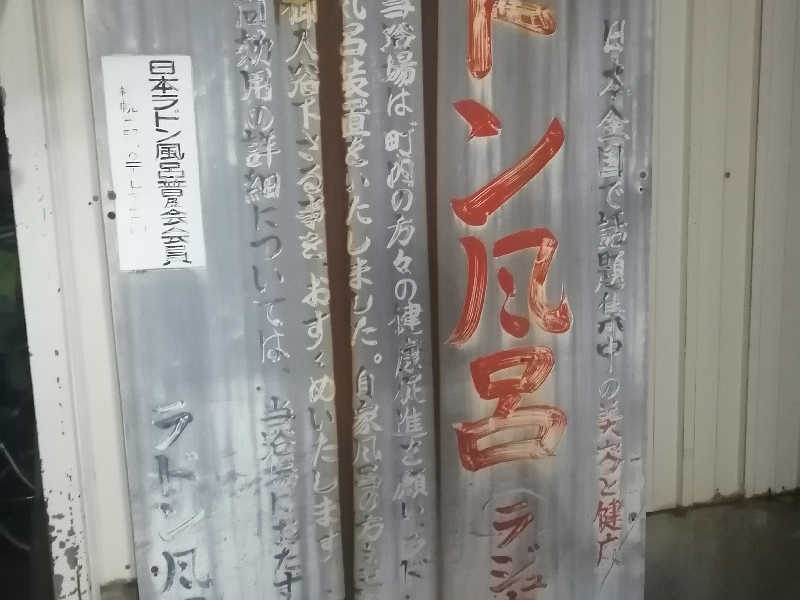 日本全国で話題集中の美容と健康
ドン風呂
ラジュ
当浴場は町内の方々の健康促進を願い
気呂装置をいたしました。自家風呂の方も
御入浴下さる事を、おすゝめいたします
同効用の詳細については、当浴場におたず
ラドン風
日本ラドン風呂普及会会員